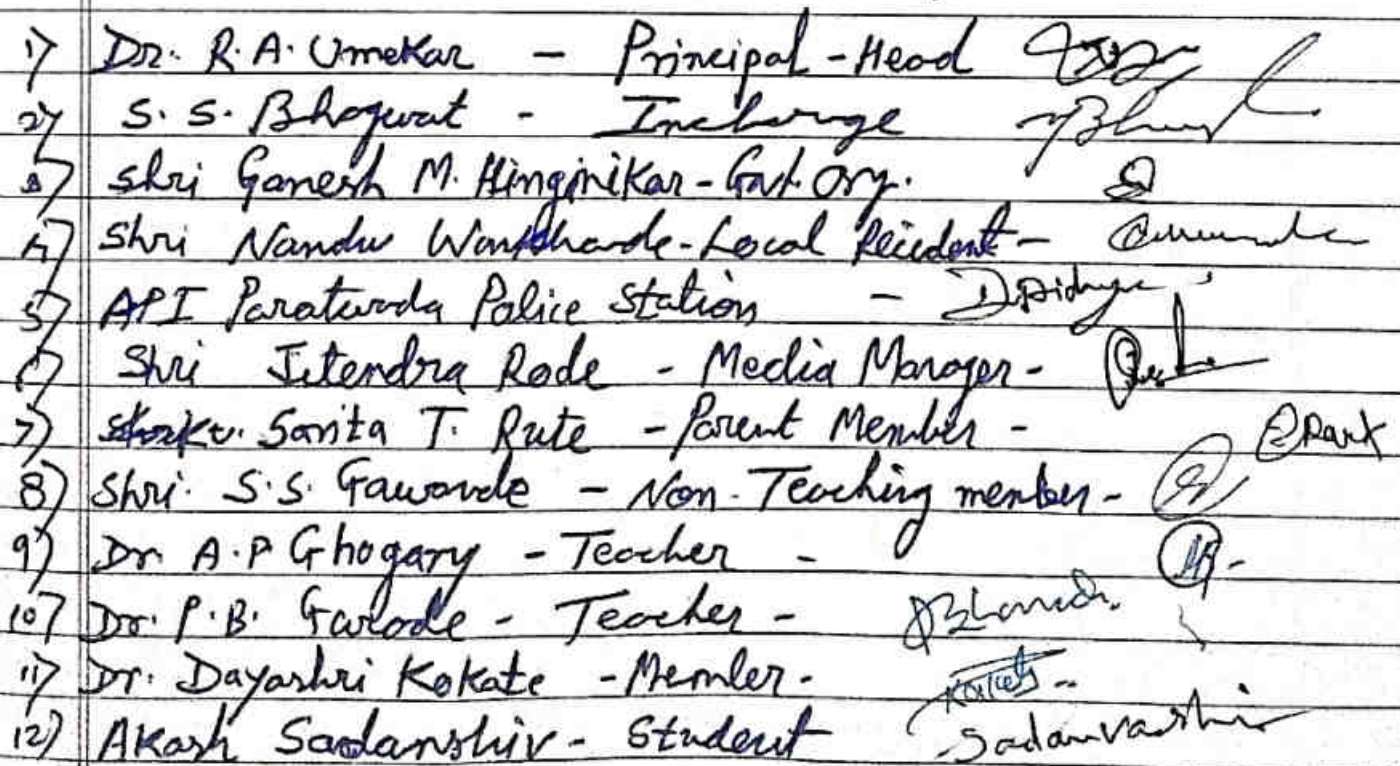 1) Dr. R.A. Umekar - Principal - Head
2) S. S. Bhagwat - Incharge
3) Shri Ganesh M. Hinginikar - Gvt. Org.
4) Shri Nandu - Local Resident -
5) API Paratwada Police Station -
6) Shri Jitendra Rode - Media Manager -
7) Sarita T. Rute - Parent Member -
8) Shri. S.S. Gawande - Non-Teaching member -
9) Dr. A.P Ghogary - Teacher -
10) Dr. P.B. Garode - Teacher -
11) Dr. Dayashri Kokate - Member.
12) Akash Sadanshiv - Student